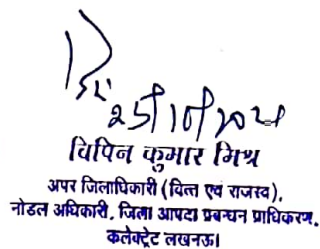 25/10/2024
विपिन कुमार मिश्र
अपर जिलाधिकारी (वित्त एवं राजस्व),
नोडल अधिकारी, जिला आपदा प्रबन्धन प्राधिकरण,
कलेक्ट्रेट लखनऊ।